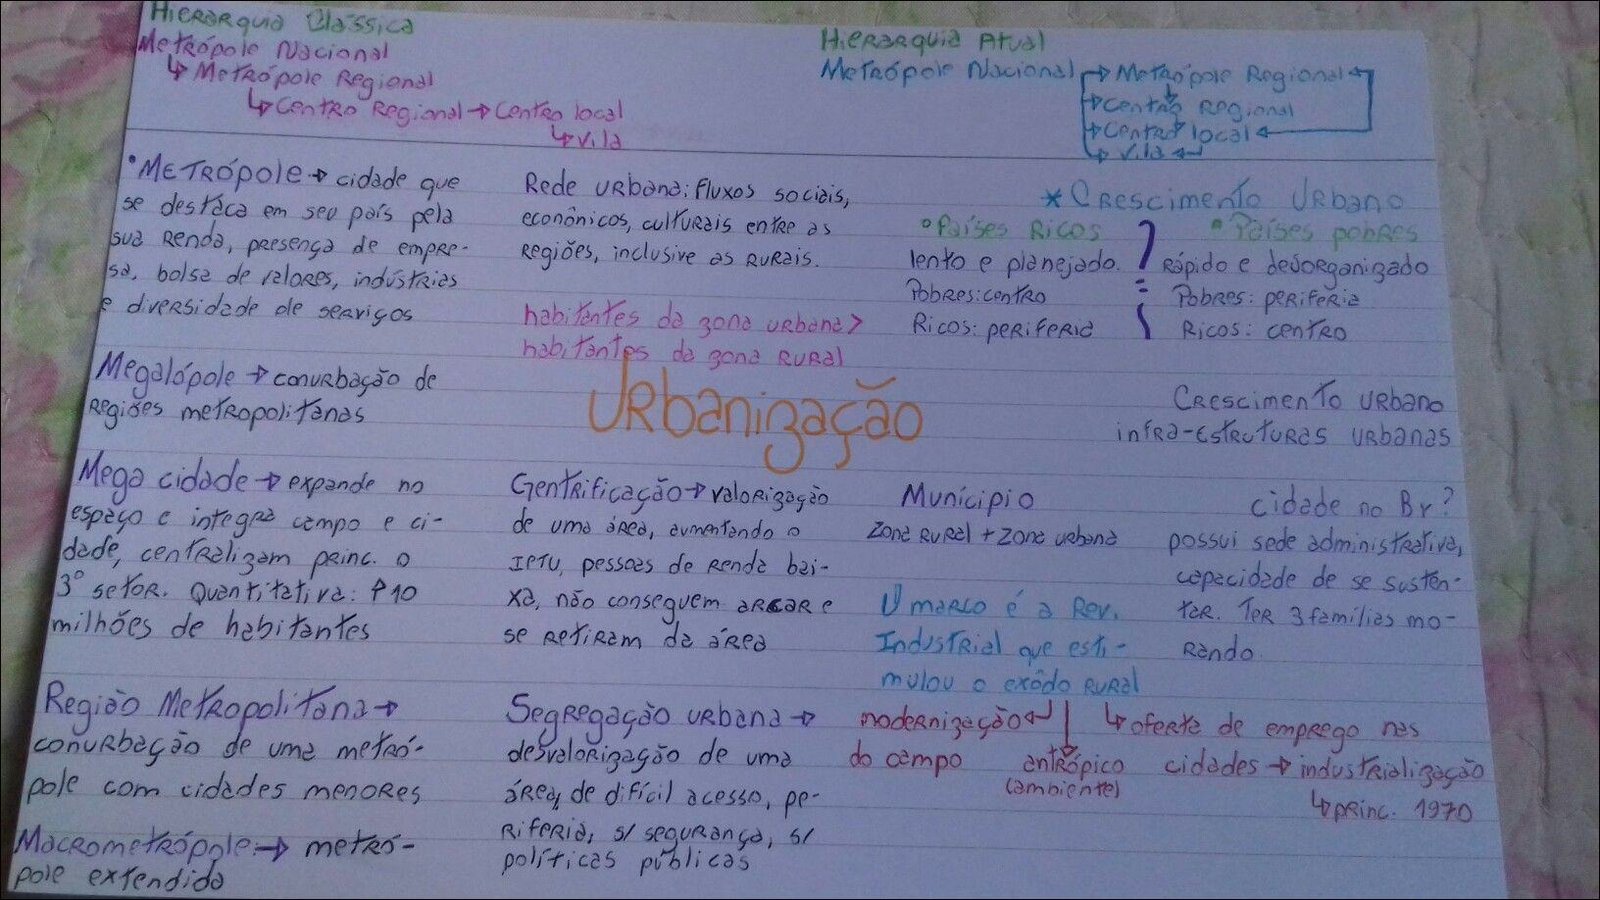 Hierarquia Clássica
Metrópole Nacional
↳ Metrópole Regional
↳ Centro Regional → Centro local
↳ Vila
Hierarquia Atual
Metrópole Nacional → Metrópole Regional
→ Centro Regional
→ Centro local
→ Vila
• Metrópole → cidade que
se destaca em seu país pela
sua renda, presença de empre-
sa, bolsa de valores, indústrias
e diversidade de serviços
Megalópole → conurbação de
Regiões metropolitanas
Mega cidade → expande no
espaço e integra campo e ci-
dade, centralizam princ. o
3º setor. Quantitativa: ↑ 10
milhões de habitantes
Região Metropolitana →
conurbação de uma metró-
pole com cidades menores
Macrometrópole → metró-
pole extendida
Rede urbana: fluxos sociais,
econônicos, culturais entre as
regiões, inclusive as rurais.
habitantes da zona urbana >
habitantes da zona rural
Urbanização
Gentrificação → valorização
de uma área, aumentando o
IPTU, pessoas de renda bai-
xa, não conseguem arcar e
se retiram da área
Segregação urbana →
desvalorização de uma
área, de difícil acesso, pe-
riferia, s/ segurança, s/
políticas públicas
* Crescimento Urbano
° Países Ricos
lento e planejado.
Pobres: centro
Ricos: periferia
° Países pobres
rápido e desorganizado
Pobres: periferia
Ricos: centro
Crescimento urbano
infra-estruturas urbanas
Munícipio
Zona rural + zona urbana
cidade no Br?
possui sede administrativa,
capacidade de se susten-
tar. Ter 3 famílias mo-
rando.
O marco é a Rev.
Industrial que esti-
mulou o exôdo rural
modernização ↵
do campo
antrópico
(ambiente)
↳ oferta de emprego nas
cidades → industrialização
↳ princ. 1970